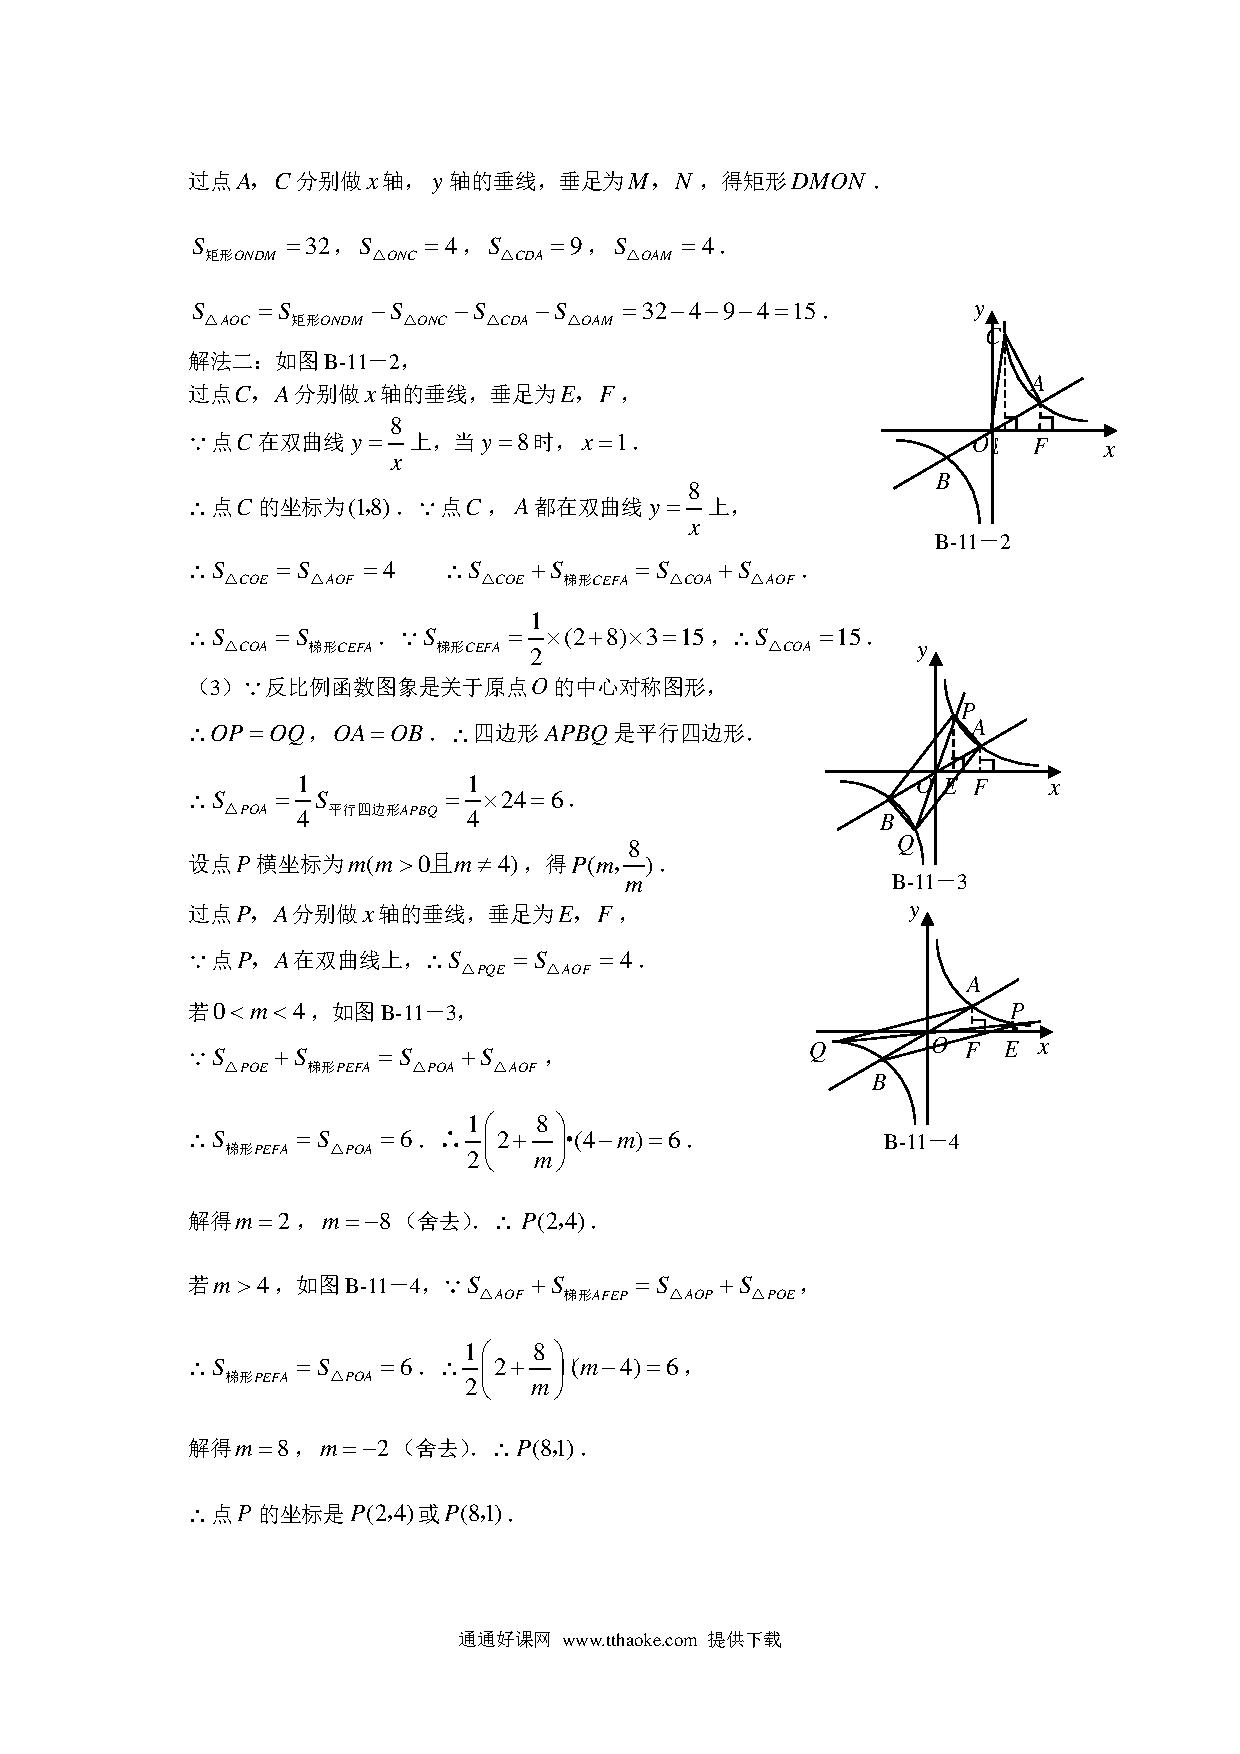 过点A，C分别做x轴，y轴的垂线，垂足为M，N，得矩形DMON．
S矩形ONDM＝32，S△ONC＝4，S△CDA＝9，S△OAM＝4．
S△AOC＝S矩形ONDM－S△ONC－S△CDA－S△OAM＝32－4－9－4＝15．
解法二：如图B-11－2，
过点C，A分别做x轴的垂线，垂足为E，F，
∵点C在双曲线y＝8/x上，当y＝8时，x＝1．
∴点C的坐标为(1,8)．∵点C，A都在双曲线y＝8/x上，
∴S△COE＝S△AOF＝4 ∴S△COE＋S梯形CEFA＝S△COA＋S△AOF．
∴S△COA＝S梯形CEFA．∵S梯形CEFA＝1/2×(2+8)×3＝15，∴S△COA＝15．
y
C
A
O E F x
B
B-11－2
（3）∵反比例函数图象是关于原点O的中心对称图形，
∴OP＝OQ，OA＝OB．∴四边形APBQ是平行四边形．
∴S△POA＝1/4 S平行四边形APBQ＝1/4×24＝6．
设点P横坐标为m(m＞0且m≠4)，得P(m,8/m)．
过点P，A分别做x轴的垂线，垂足为E，F，
∵点P，A在双曲线上，∴S△PQE＝S△AOF＝4．
若0＜m＜4，如图B-11－3，
∵S△POE＋S梯形PEFA＝S△POA＋S△AOF，
∴S梯形PEFA＝S△POA＝6．∴1/2(2+8/m)•(4－m)＝6．
y
P
A
O E F x
B
Q
B-11－3
y
A
P
Q O F E x
B
B-11－4
解得m＝2，m＝－8（舍去）．∴P(2,4)．
若m＞4，如图B-11－4，∵S△AOF＋S梯形AFEP＝S△AOP＋S△POE，
∴S梯形PEFA＝S△POA＝6．∴1/2(2+8/m)·(m－4)＝6，
解得m＝8，m＝－2（舍去）．∴P(8,1)．
∴点P的坐标是P(2,4)或P(8,1)．
通通好课网 www.tthaoke.com 提供下载